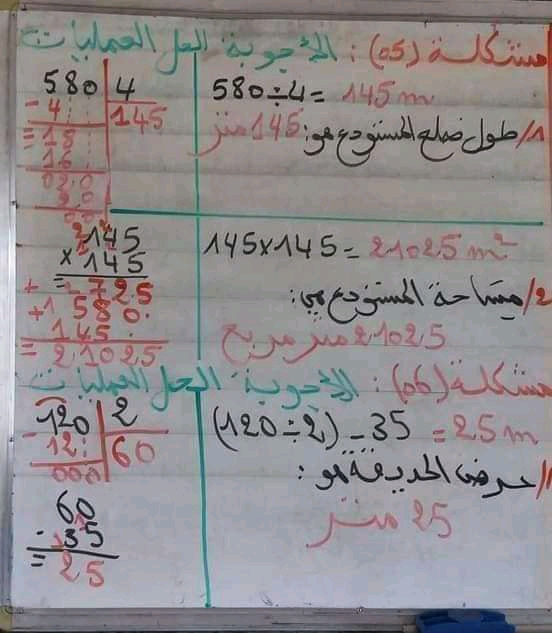 مشكلة (05): الأجوبة الحل العمليات
1/ طول ضلع المستودع هو: 145 متر
580÷4= 145m
580 4
- 4 145
= 18
16
020
20
00
2/ مساحة المستودع هي:
21025 متر مربع
145×145= 21025 m²
145
× 145
= 725
+ 580.
+ 145..
= 21025
مشكلة (06): الأجوبة الحل العمليات
1/ عرض الحديقة هو:
25 متر
(120÷2) - 35 = 25 m
120 2
- 12 60
000
60
- 35
= 25